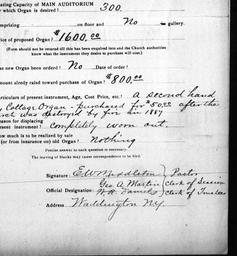 ating Capacity of MAIN AUDITORIUM
which Organ is desired? 300.
mprising on floor and No gallery.
rice of proposed Organ? $1600.00
(Form should not be returned till this has been required into and the Church authorities
know what the instrument they desire to purchase will cost.)
as new Organ been ordered? No Date of order?
mount already raised toward purchase of Organ? $800.00
articulars of present instrument, Age, Cost Price, etc.? A second hand
y Cottage Organ - purchased for $50.00 after the
was destroyed by fire in 1887
ason for displacing
resent instrument? completely worn out.
ow much is to be realized by sale
(or from insurance on) old Organ? Nothing
Precise answer to each question is necessary.
The leaving of blanks may cause correspondence to be filed.
Signature: E W Middleton Pastor
Geo A Martin Clerk of Session
Official Designation: W H Daniels Clerk of Trustees
Address Waddington N.Y.